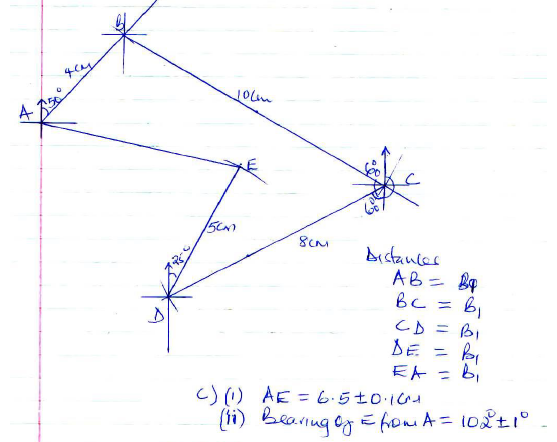 B
4cm
A 50°
10cm
E
60° C
60°
5cm
8cm
25°
D
Distances
AB = B1
BC = B1
CD = B1
DE = B1
EA = B1
C) (i) AE = 6.5±0.1cm
(ii) Bearing of E from A = 102°±1°